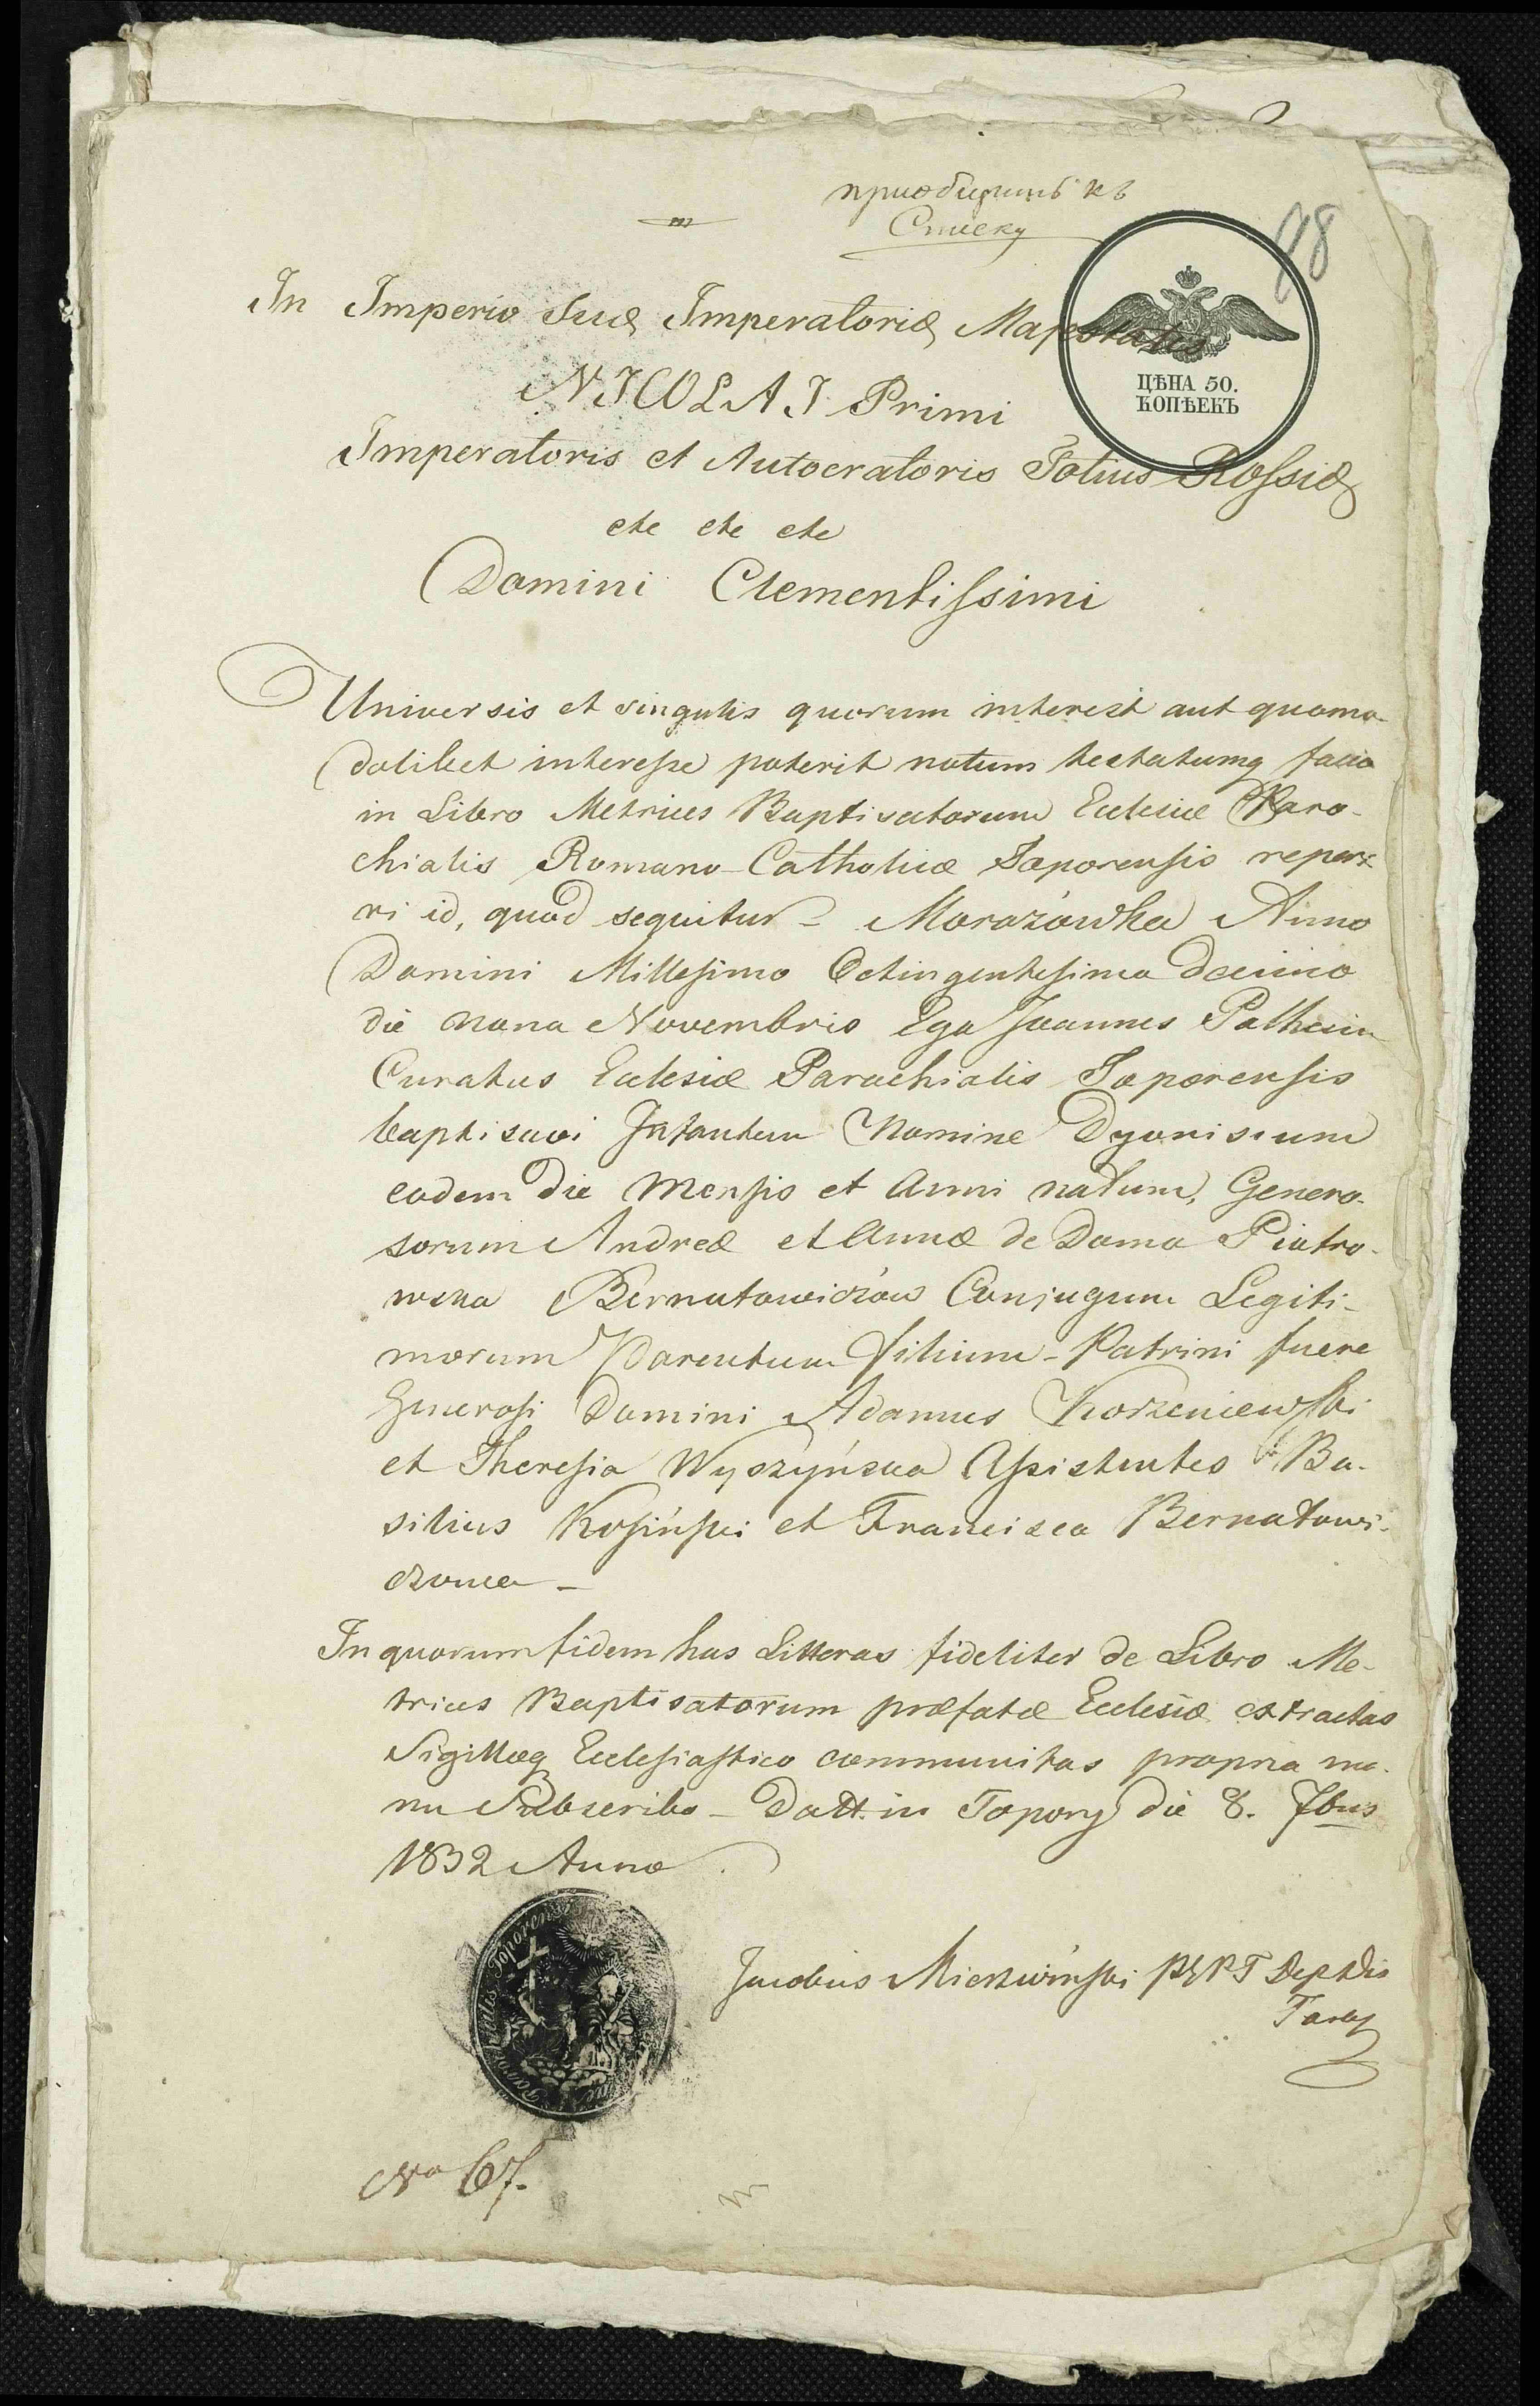 къ
78
In Imperio Suæ Imperatoriæ Majestatis
NICOLAI Primi
ЦѢНА 50.
КОПѢЕКЪ
Imperatoris et Autocratoris Totius Rossiæ
etc etc etc
Domini Clementissimi
Universis et singulis quorum interest aut quomo-
dolibet interesse poterit notum testatumq facio
in Libro Metrices Baptisatorum Eclesiæ Paro-
chialis Romano-Catholicæ Toporensis repe-
ri id, quod sequitur - Morozówka Anno
Domini Millesimo Octingentesimo decimo
die nona Novembris Ego Joannes
Curatus Eclesiæ Parochialis Toporensis
baptisavi Infantem Nomine Dyonisium
eodem die Mensis et Anni natum, Genero-
sorum Andreæ et Annæ de Domo Piotro-
wska Bernatowiczów Conjugum Legiti-
morum Parentum filium - Patrini fuere
Generosi Domini Adamus Korzeniewski
et Theresia Wyszyńska Assistentes Ba-
silius Kosiński et Francisca Bernatowi-
czowa -
In quorum fidem has Litteras fideliter de Libro Me-
trices Baptisatorum præfatæ Eclesiæ extractas
Sigilloq Ecclesiastico communitas propria ma-
nu Subscribo - Datt. in Topory die 8. 7bris
1832 Anno
Toporensis
Jacobus Mierzwiński
No 67.